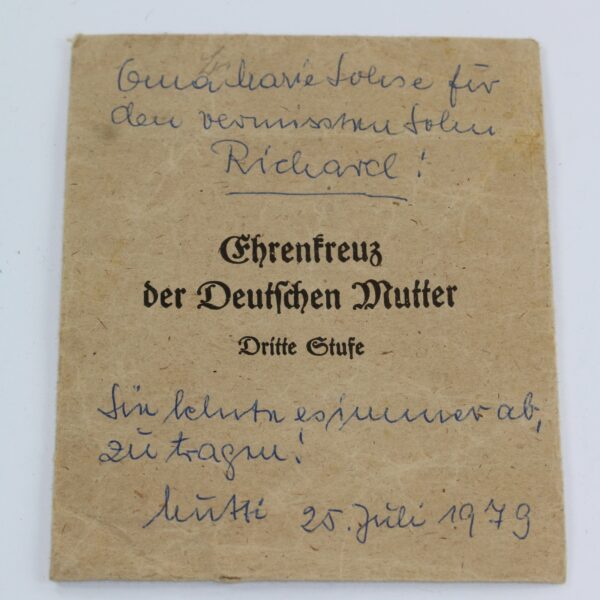 Oma Marie Lohse für
den vermissten Sohn
Richard!
Ehrenkreuz
der Deutschen Mutter
Dritte Stufe
Sie lehnte es immer ab,
zu tragen!
Mutti 25. Juli 1979